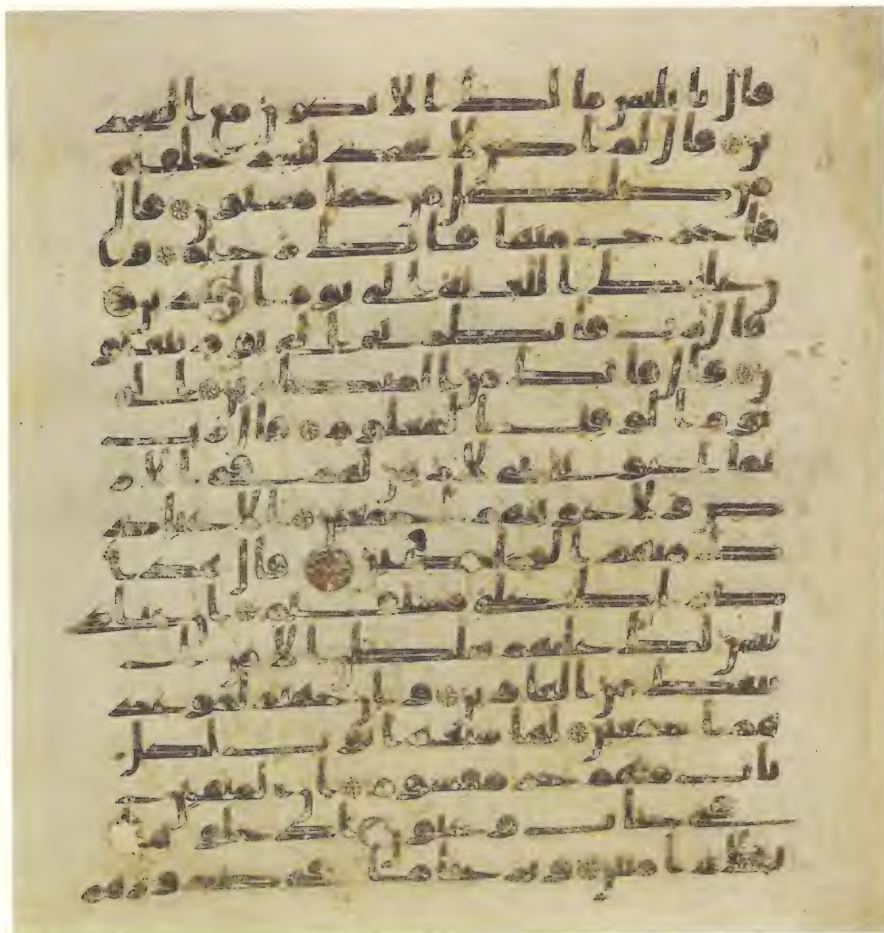 قال يابليس ما لك الا تكون مع السجد
ين قال لم اكن لا سجد لبشر خلقته
من صلصل من حما مسنون قال
فاخرج منها فانك رجيم وا
ن عليك اللعنة الى يوم الدين
قال رب فانظرنى الى يوم يبعثو
ن قال فانك من المنظرين الى
يوم الوقت المعلوم قال رب
بما اغويتنى لازينن لهم فى الار
ض ولاغوينهم اجمعين الا عباد
ك منهم المخلصين قال هذا
صرط على مستقيم ان عبادى
ليس لك عليهم سلطن الا من ا
تبعك من الغاوين وان جهنم لموعد
هم اجمعين لها سبعة ابوب لكل
باب منهم جز مقسوم ان المتقين
فى جنت وعيون ادخلوها
بسلم امنين ونزعنا ما فى صدورهم